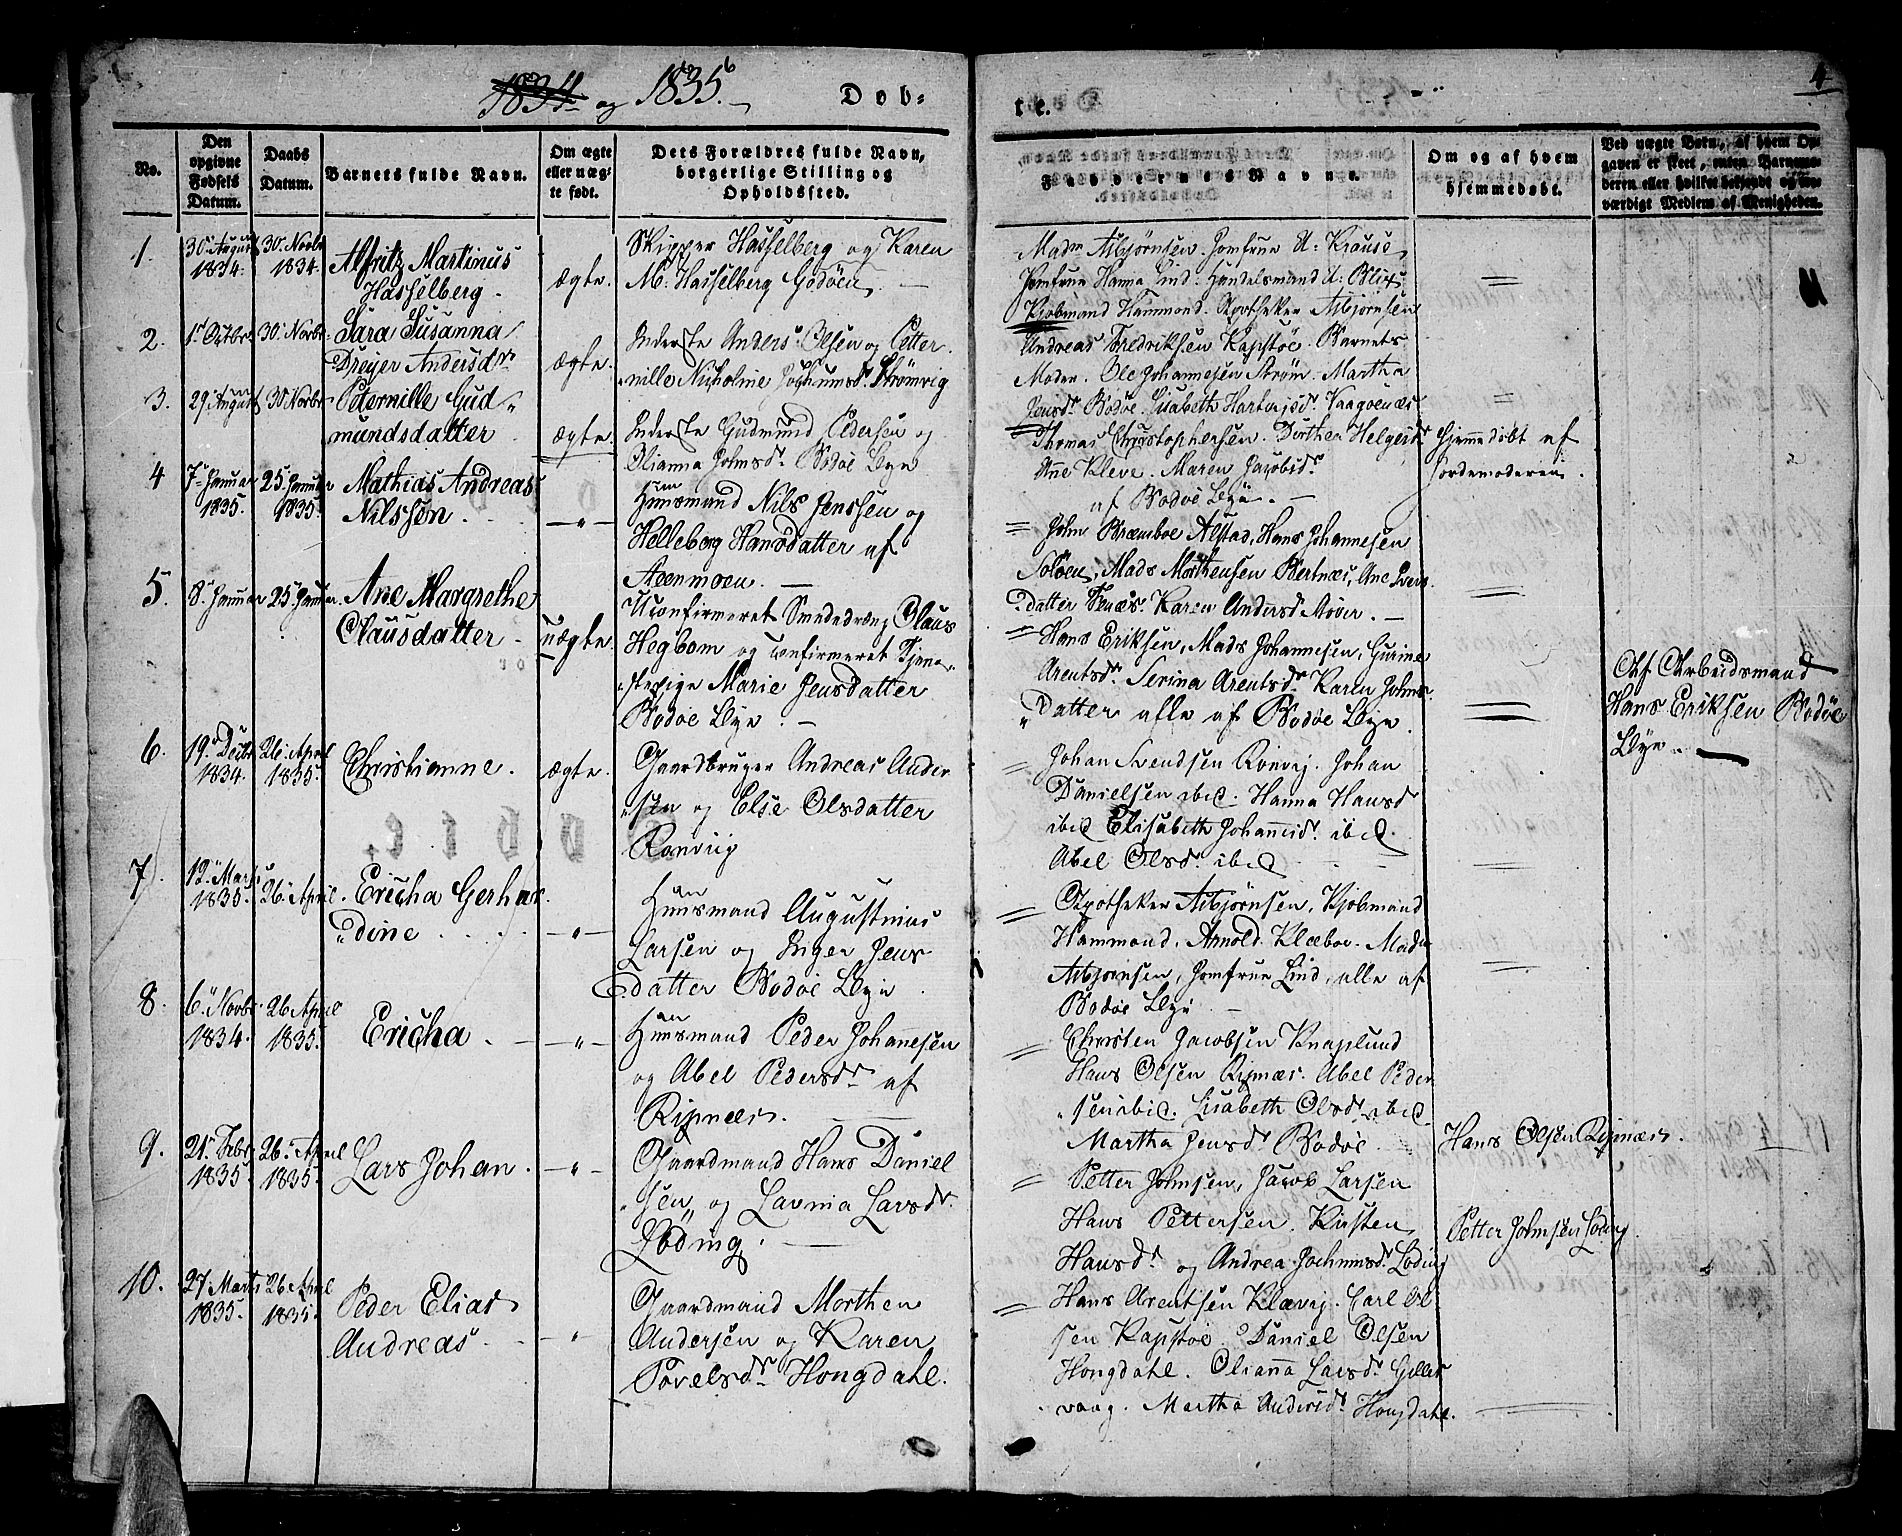 1834 og 1835.
Dob-
te.
4
No.
Den
opgivne
Fødsels
Datum.
Daabs
Datum.
Barnets fulde Navn.
Om ægte
eller uæg-
te født.
Dets Forældres fulde Navn,
borgerlige Stilling og
Opholdssted.
Faddernes Navne.
Om og af hvem
hjemmedøbt.
Ved uægte Børn, af hvem Op-
gaven er skeet, enten Barnemo-
deren eller hvilket bekjendt og tro-
værdigt Medlem af Menigheden.
1.
30. August
1834.
30. Novbr
1834.
Alfritz Martinus
Hasselberg.
ægte.
Skipper Hasselberg og Karen
M. Hasselberg Godøen.
Madm Asbjørnsen. Jomfrue A: Krause,
Jomfrue Hanna Lind. Handelsmand A: Blix
Kjøbmand Hammond. Apotheker Asbjørnsen
2.
1. Octbr
30 Novbr
Sara Susanna
Dreyer Andersdr
ægte.
Inderste Anders Olsen og Petter-
nille Nicholine Jochumsdr. Strømvig
Andreas Fredriksen Kapstøe. Barnets
Moder. Ole Johannesen Strøm. Martha
Jensdr Bodøe. Lisabeth Hartvigsd. Vaagøenæs
3.
29 August
30 Novbr
Peternille Gud
mundsdatter
ægte.
Inderste Gudmund Pedersen og
Olianna Johnsdr. Bodøe Bye
Thomas Christophersen. Dorthea Helgesd.
Ane Kleve. Maren Jacobsdr
af Bodøe Bye.
Hjemmedøbt af
Jordemoderen.
4
7. Januar
1835.
25. Januar
1835.
Mathias Andreas
Nilssen.
Huusmand Nils Jenssen og
Helleborg Hansdatter af
Steenmoen.
John Bræmboe Alstad, Hans Johannesen
Soløen, Mads Morthensen Bertnæs, Ane Ivers
datter Stenæs. Karen Andersd. Møver.
5.
8. Januar
25. Januar.
Ane Margrethe
Clausdatter
uægte.
Uconfirmeret Smededræng Claus
Hegbom og Confirmeret Tjene
stepige Marie Jensdatter
Bodøe Bye.
Hans Eriksen, Mads Johannesen, Gurine
Arentsdr. Serina Arentsdr. Karen Johns
Datter alle af Bodøe Bye.
Af Arbeidsmand
Hans Eriksen Bodøe
Bye.
6.
19. Decbr
1834.
26. April
1835.
Christianne.
ægte.
Gaardbruger Andreas Ander
sen og Else Olsdatter
Rønvig
Johan Svendsen Rønvig. Johan
Danielsen ibid. Hanna Hansd
ibid Elisabeth Johannisdr. ibid.
Abel Olsdr. ibid
7.
12. Marts
1835.
26. April.
Ericha Gerhar
dine
Huusmand Augustinius
Larsen og Inger Jens
Datter Bodøe Bye
Apotheker Asbjørnsen, Kjøbmand
Hammond, Arnold Klæboe. Madm
Asbjørnsen, Jomfrue Lind, alle af
Bodøe Bye
8.
6. Novbr.
1834.
26 April
1835.
Ericha
Huusmand Peder Johannesen
og Abel Pedersdr. af
Ripnæs.
Christen Jacobsen Knaplund
Hans Olsen Ripnæs. Abel Peder
sen ibid. Lisabeth Olsdr ibid
Martha Jensdr. Bodøe
Hans Olsen Ripnæs.
9.
21. Febr
1835
26. April
1835.
Lars Johan.
Gaardmand Hans Daniel
sen, og Lavina Larsdr.
Løding.
Petter Johnsen, Jacob Larsen
Hans Pettersen. Kirsten
Hansdr. og Andrea Jochumsdr. Løding
Petter Johnsen Løding.
10.
27. Marts
1835.
26 April
1835.
Peder Elias
Andreas
Gaardmand Morthen
Andersen og Karen
Povelsdr. Hongdahl.
Hans Arentsen Klævig. Carl Ol
sen Kapstøe. Daniel Olsen
Hongdahl. Olianna Larsdr. Gilles
vaag. Martha Andersdr. Hongdahl.